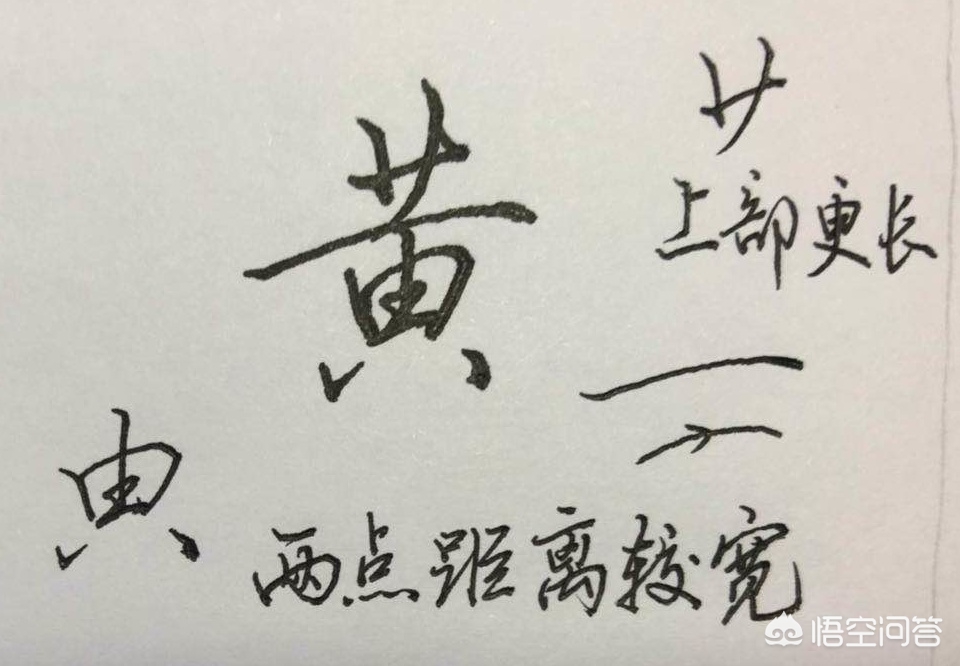 黄
上部更长
两点距离较宽
悟空问答